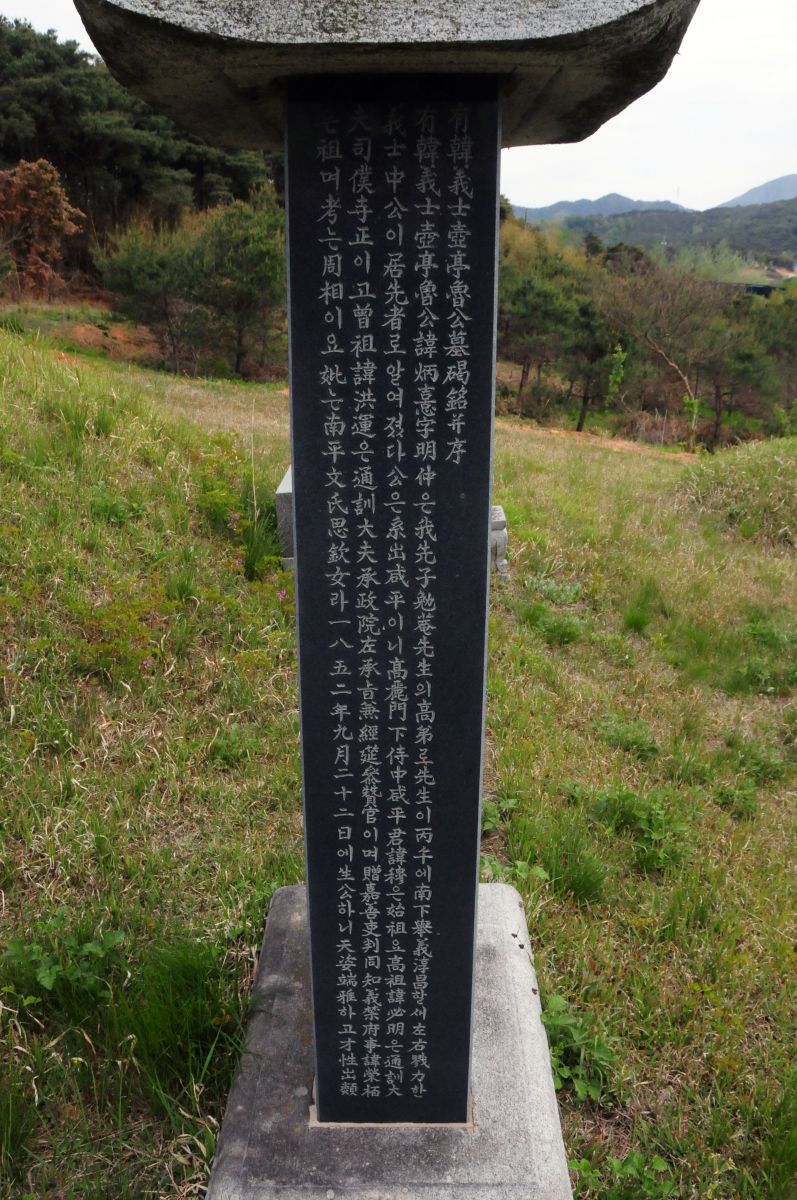 有韓義士壺亭魯公墓碣銘并序
有韓義士壺亭魯公諱炳憙字明仲은我先子勉菴先生의高弟로先生이丙午에南下擧義淳昌할새左右戮力한
義士中公이居先者로알여졌다公은系出咸平이니高麗門下侍中咸平君諱穆은始祖요高祖諱必明은通訓大
夫司僕寺正이고曾祖諱洪運은通訓大夫承政院左承旨兼經筵參贊官이며贈嘉善吏判同知義禁府事諱榮栢
은祖며考는周相이요妣는南平文氏思欽女라一八五二年九月二十二日에生公하니天姿端雅하고才性出類